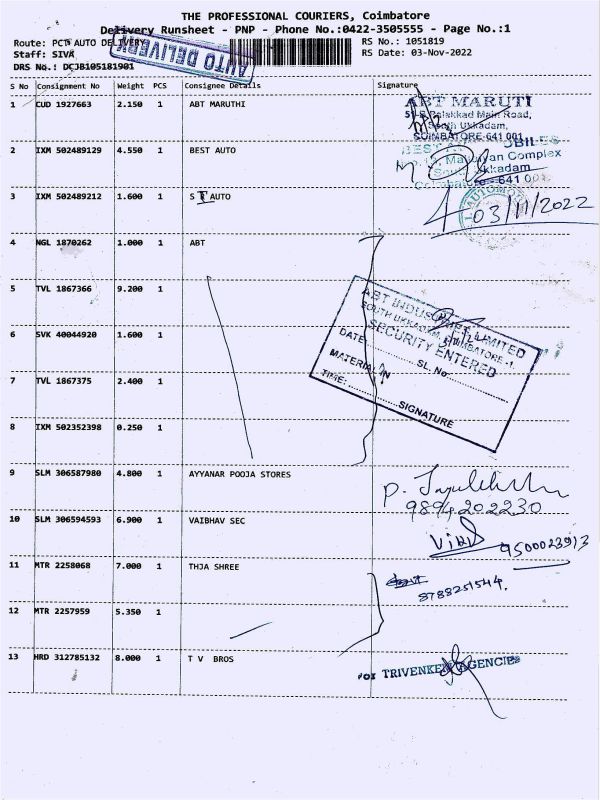 THE PROFESSIONAL COURIERS, Coimbatore
Delivery Runsheet - PNP - Phone No.:0422-3505555 - Page No.:1
Route: PCT AUTO DELIVERY
RS No.: 1051819
Staff: SIVA
RS Date: 03-Nov-2022
DRS No.: DCJB105181901
AUTO DELIVERY
S No Consignment No Weight PCS Consignee Details Signature
1 CUD 1927663 2.150 1 ABT MARUTHI
ABT MARUTI
Palakkad Main Road,
South Ukkadam,
COIMBATORE-641 001
2 IXM 502489129 4.550 1 BEST AUTO
BEST
Complex
Ukkadam
Coimbatore - 641 001
3 IXM 502489212 1.600 1 S T AUTO
03/11/2022
4 NGL 1870262 1.000 1 ABT
5 TVL 1867366 9.200 1
ABT INDUSTRIES LIMITED
SOUTH UKKADAM, COIMBATORE-1.
SECURITY ENTERED
DATE SL. No.
MATERIAL IN
TIME: SIGNATURE
6 SVK 40044920 1.600 1
7 TVL 1867375 2.400 1
8 IXM 502352398 0.250 1
9 SLM 306587980 4.800 1 AYYANAR POOJA STORES
9894202230
10 SLM 306594593 6.900 1 VAIBHAV SEC
9500023913
11 MTR 2258068 7.000 1 THJA SHREE
8788251544.
12 MTR 2257959 5.350 1
13 HRD 312785132 8.000 1 T V BROS
FOR TRIVENKE AGENCIES